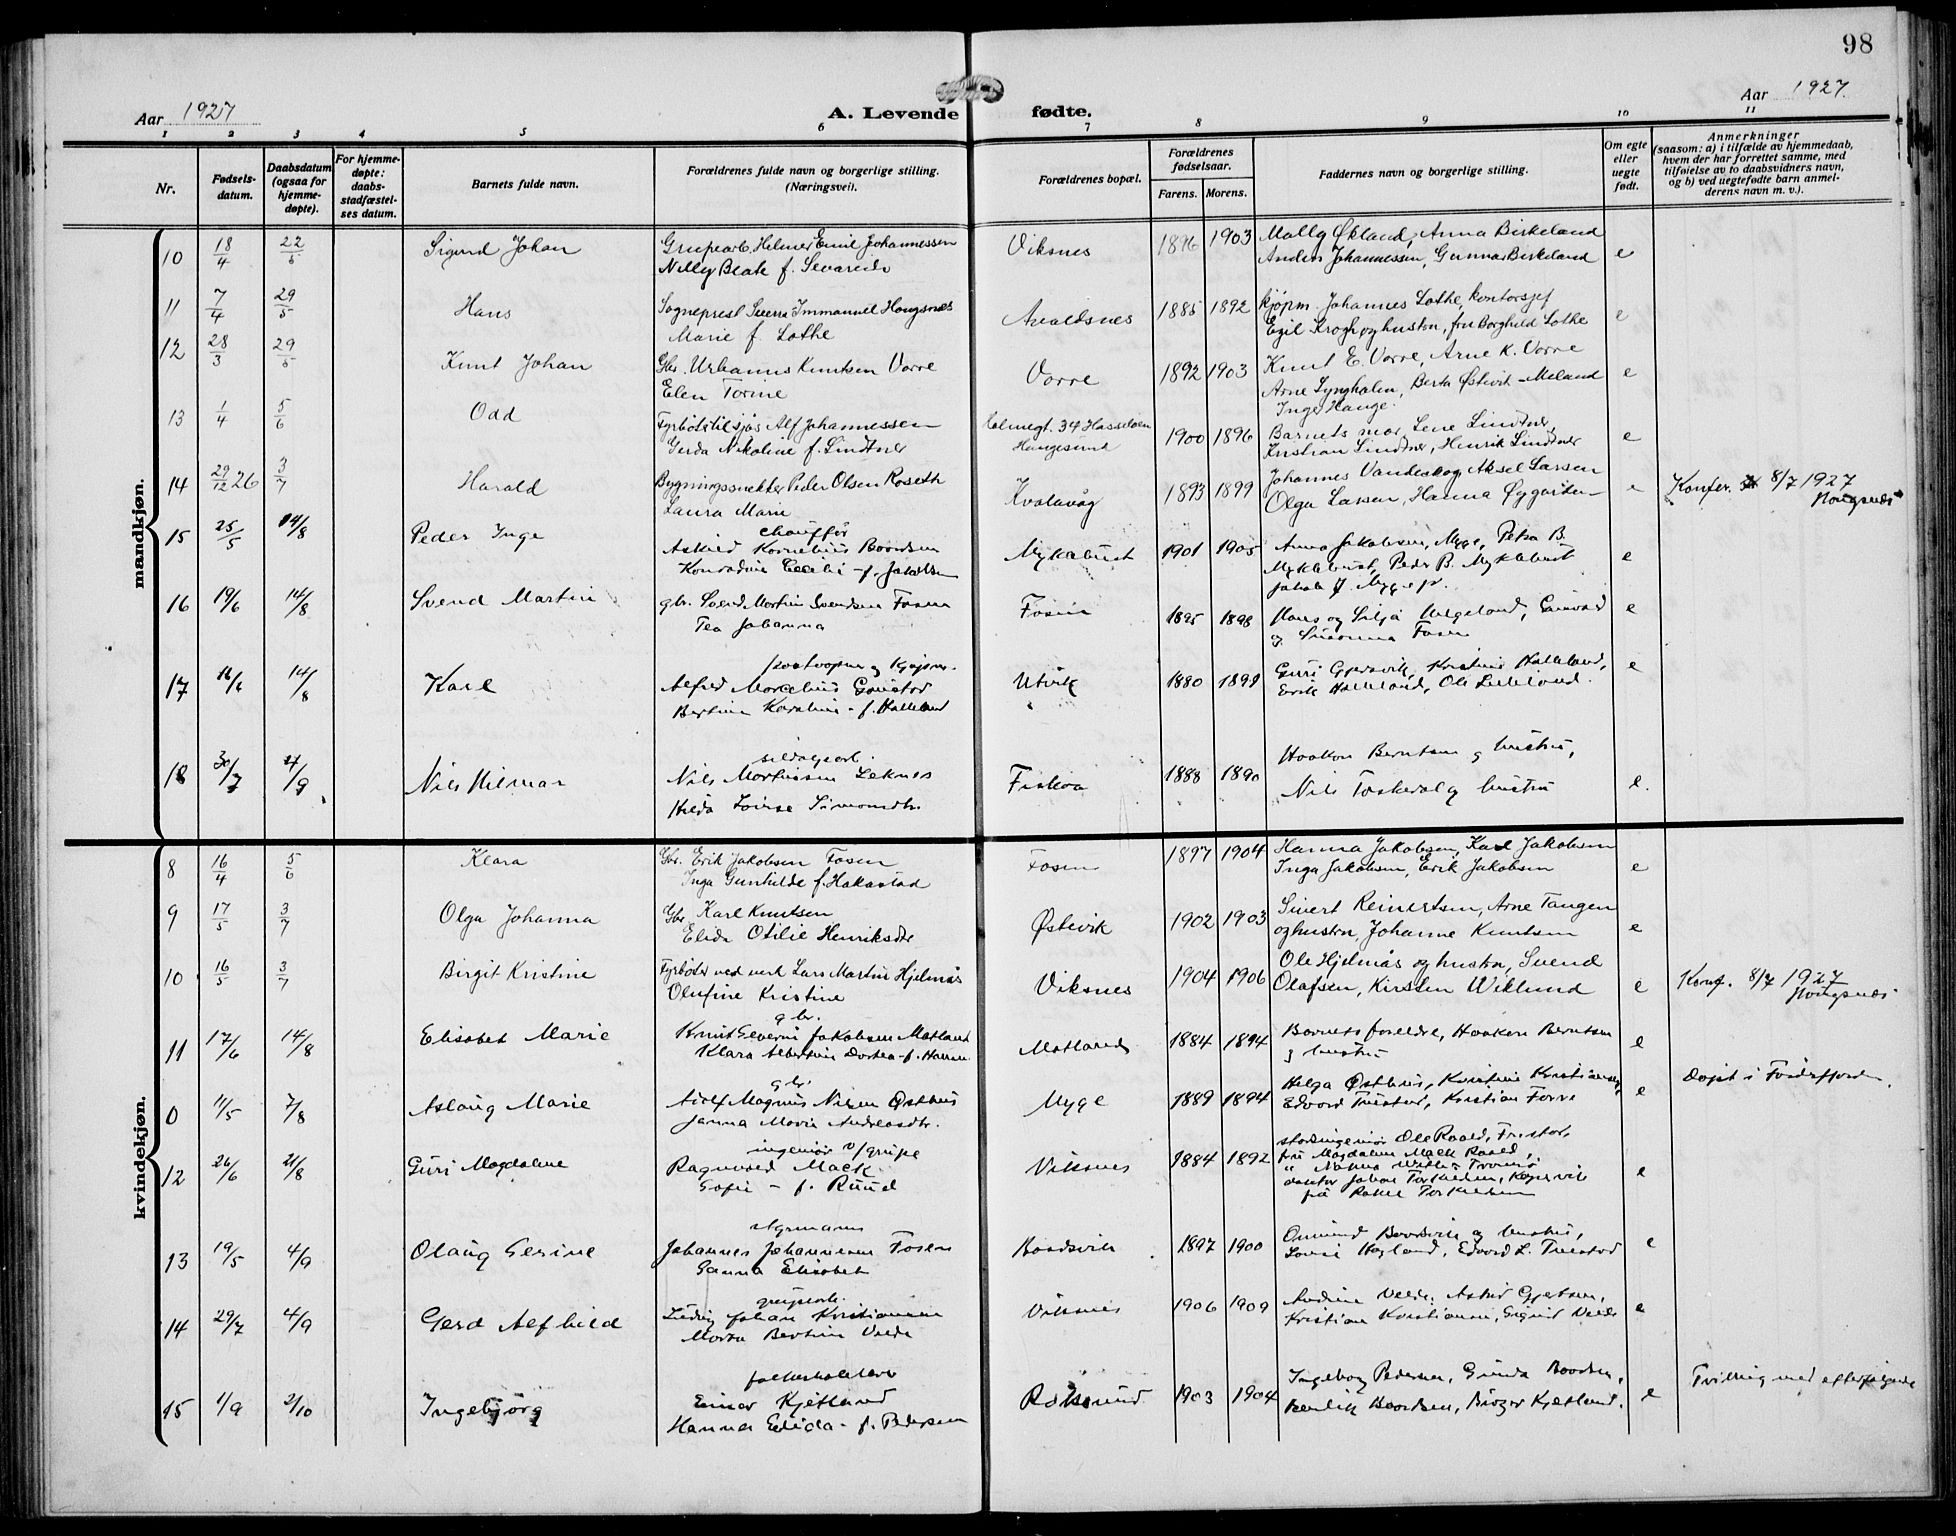 98
Aar 1927
A. Levende fødte.
Aar 1927.
1 2 3 4 5 6 7 8 9 10 11
Nr.
Fødsels-
datum.
Daabsdatum
(ogsaa for
hjemme-
døpte).
For hjemme-
døpte:
daabs-
stadfæstel-
ses datum.
Barnets fulde navn.
Forældrenes fulde navn og borgerlige stilling.
(Næringsvei).
Forældrenes bopæl.
Forældrenes
fødselsaar.
Farens. Morens.
Faddernes navn og borgerlige stilling.
Om egte
eller
uegte
født.
Anmerkninger
(saasom: a) i tilfælde av hjemmedaab,
hvem der har forrettet samme, med
tilføielse av to daabsvidners navn,
og b) ved uegtefødte barn anmel-
derens navn m. v.).
mandkjøn.
10 18/4 22/5 Sigurd Johan Grupearb. Helmer Emil Johannessen Viksnes 1896 1903 Mally Økland, Anna Birkeland
Nelly Beate f. Sevareide Anders Johannessen, Gunnar Birkeland e
11 7/4 29/5 Hans Sogneprest Sverre Immanuel Hougsnæs Avaldsnes 1885 1892 kjøpm. Johannes Lothe, kontorsjef
Marie f. Lothe Egil Krogh og hustru, fru Borghild Lothe e
12 28/3 29/5 Knut Johan Gbr. Urbanus Knutsen Vorre Vorre 1892 1903 Knut E. Vorre, Arne K. Vorre
Elen Torine Arne Lyngholm, Berta Østevik-Meland e
Inger Hauge.
13 1/4 5/6 Odd Fyrbøter tilsjøs Alf Johannessen Holmegt. 34 Hasseløen 1900 1896 Barnets mor, Lene Lindtner,
Gerda Nikoline f. Lindtner Haugesund Kristian Lindtner, Henrik Lindtner e
14 29/12 26 3/7 Harald Bygningssnekker Peder Olsen Roseth Kvalavåg 1893 1899 Johannes Vandeskog, Aksel Larsen
Laura Marie Olga Larsen, Hanna Øygarden e Konfer. 8/7 1927
Hougsnæs
15 25/5 14/8 Peder Inge chauffør
Askild Kornelius Baardsen Myklebust 1901 1905 Anna Jakobsen, Myge, Petra B.
Konradine Cecelie f. Jakobsen Myklebust, Peder B. Myklebust e
Jakob J. Myge
16 19/6 14/8 Svend Martin gbr. Svend Martin Svendsen Fosen Fosen 1895 1898 Hans og Silja Helgeland, e
Tea Johanna og Susanna Fosen
17 14/8 Karl postaapner og kjøpm.
Alfred Utvik 1880 1899 Guri Gjersvik, Kristine Halleland, e
Bertine Karoline - f. Halleland Erik Halleland, Ole Lilleland.
18 30/7 4/9 Nils Hilmar sildeexport.
Nils Mortensen Leknes Fiskaa 1888 1890 Haakon Berntsen og hustru,
Hilda Lovise Simonsdtr. Nils Toskedal og hustru e.
kvindekjøn.
8 16/4 5/6 Klara Gbr. Erik Jakobsen Fosen Fosen 1897 1904 Hanna Jakobsen, Karl Jakobsen
Inga Gunhilde f. Hakastad Inga Jakobsen, Erik Jakobsen e
9 17/5 3/7 Olga Johanna Gbr. Karl Knutsen Østevik 1902 1903 Sivert Reinertsen, Arne Tangen
Elida Otilie Henriksdtr og hustru, Johanne Knutsen e
10 16/5 3/7 Birgit Kristine Fyrbøter ved verk Lars Martin Hjelmås Viksnes 1904 1906 Ole Hjelmås og hustru, Svend
Olufine Kristine Olafsen, Kirsten Wiklund e Konf. 8/7 1927
Hougsnæs
11 17/6 14/8 Elisabet Marie gbr.
Knut Severin Jakobsen Matland Matland 1884 1894 Barnets foreldre, Haakon Berntsen
Klara Albertine Dortea f. og hustru e
0 11/5 7/8 Aslaug Marie gbr.
Adolf Magnus Nilsen Østhus Myge 1889 1894 Helga Østhus, Kristine Kristiansen, e Døpt i Førdesfjorden.
Janna Marie Andreasdtr. Edvard Fristad, Kristian Førre
12 26/6 21/8 Guri Magdalene ingeniør v/grupe
Ragnvald Mack Viksnes 1884 1892 Ole Raabd,
Sofie - f. Ruud fru Magdalene Mack Raabd, e
doktor Johan Torkildsen, Kopervik
fru Torkildsen
13 19/5 4/9 Olaug Gesine styrmann
Johannes Johannesen Fosen Baadsvik 1897 1900 Omund Baadsvik og hustru, e
Ganna Elisabet Hagland, Edvard L. Fristad
14 29/7 4/9 Gerd Alfhild grupearb.
Ludvig Johan Kristiansen Viksnes 1906 1909 Andrine Velde, Astrid Gjertsen, e
Marta Bertine Velde Kristian Kristiansen, Sigurd Velde
15 1/9 2/10 Ingebjørg
Einar Kjetland Røksund 1903 1904 Ingeborg Pedersen, Gunda Baardsen, e Tvilling med efterfølgende
Hanna Elida - f. Pedersen Henrik Baardsen, Birger Kjetland.